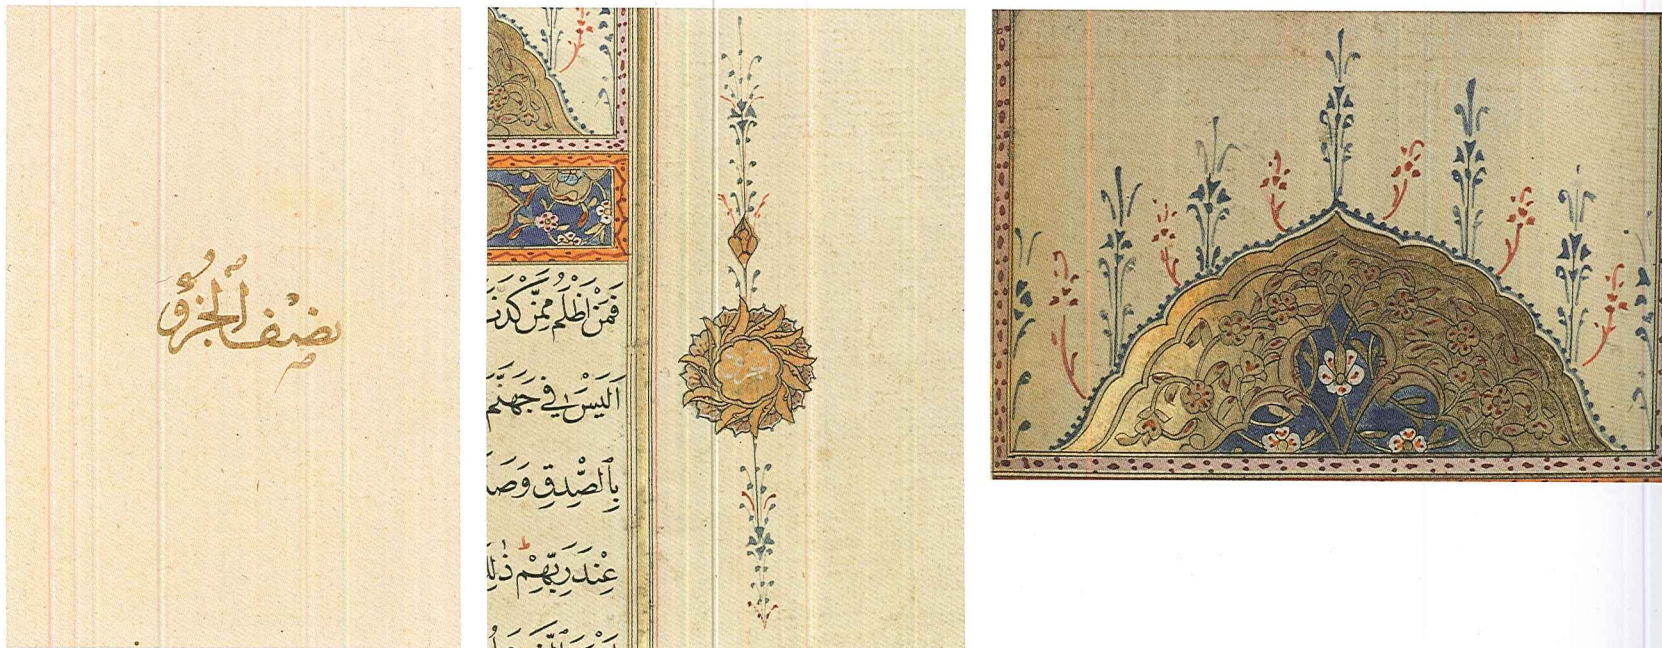 نصف الجزؤ
فَمَنْ اَظْلَمُ مِمَّنْ كَذَبَ
اَلَيْسَ فِي جَهَنَّمَ
بِالصِّدْقِ وَصَدَّ
عِنْدَ رَبِّهِمْ ذٰلِكَ